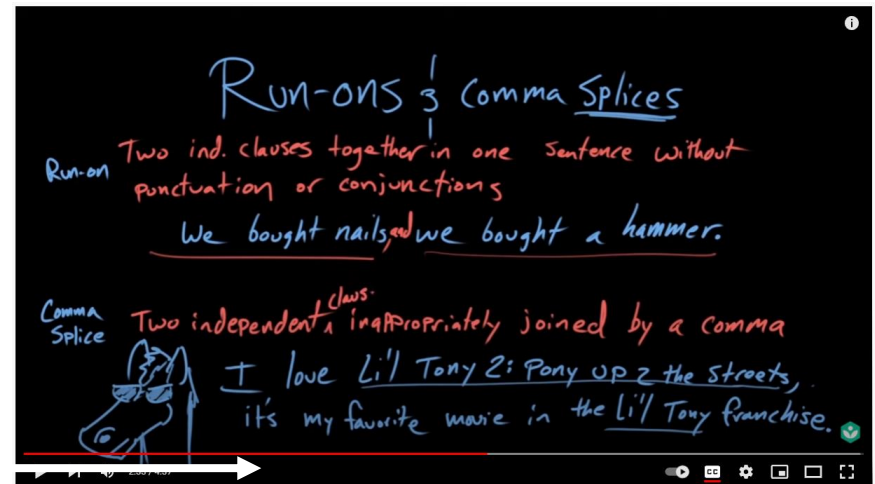 Run-ons & Comma Splices
Run-on
Two ind. clauses together in one sentence without
punctuation or conjunctions
We bought nails, and we bought a hammer.
Comma
Splice
Two independent claus. inappropriately joined by a comma
I love Li'l Tony 2: Pony up 2 the Streets,
it's my favorite movie in the Li'l Tony franchise.
CC